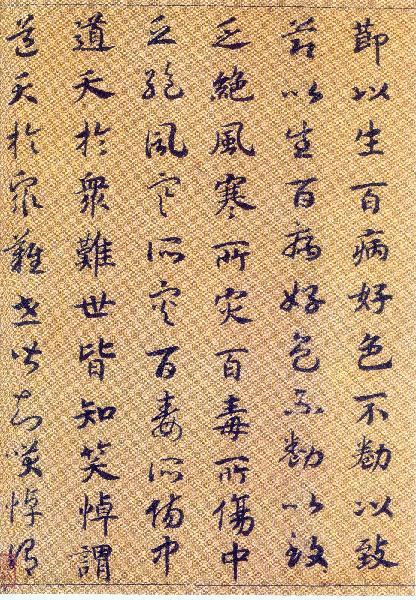 節以生百病好色不勌以致
節以生百病好色不勌以致
乏絕風寒所灾百毒所傷中
乏絕風寒所灾百毒所傷中
道夭於衆難世皆知笑悼謂
道夭於衆難世皆知笑悼謂